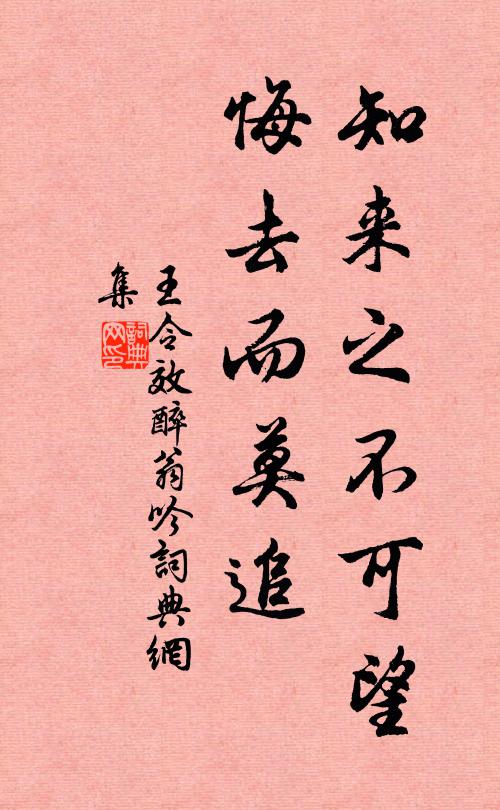 知来之不可望
悔去而莫追
王令效醉翁吟詞典網
集
詞典網印